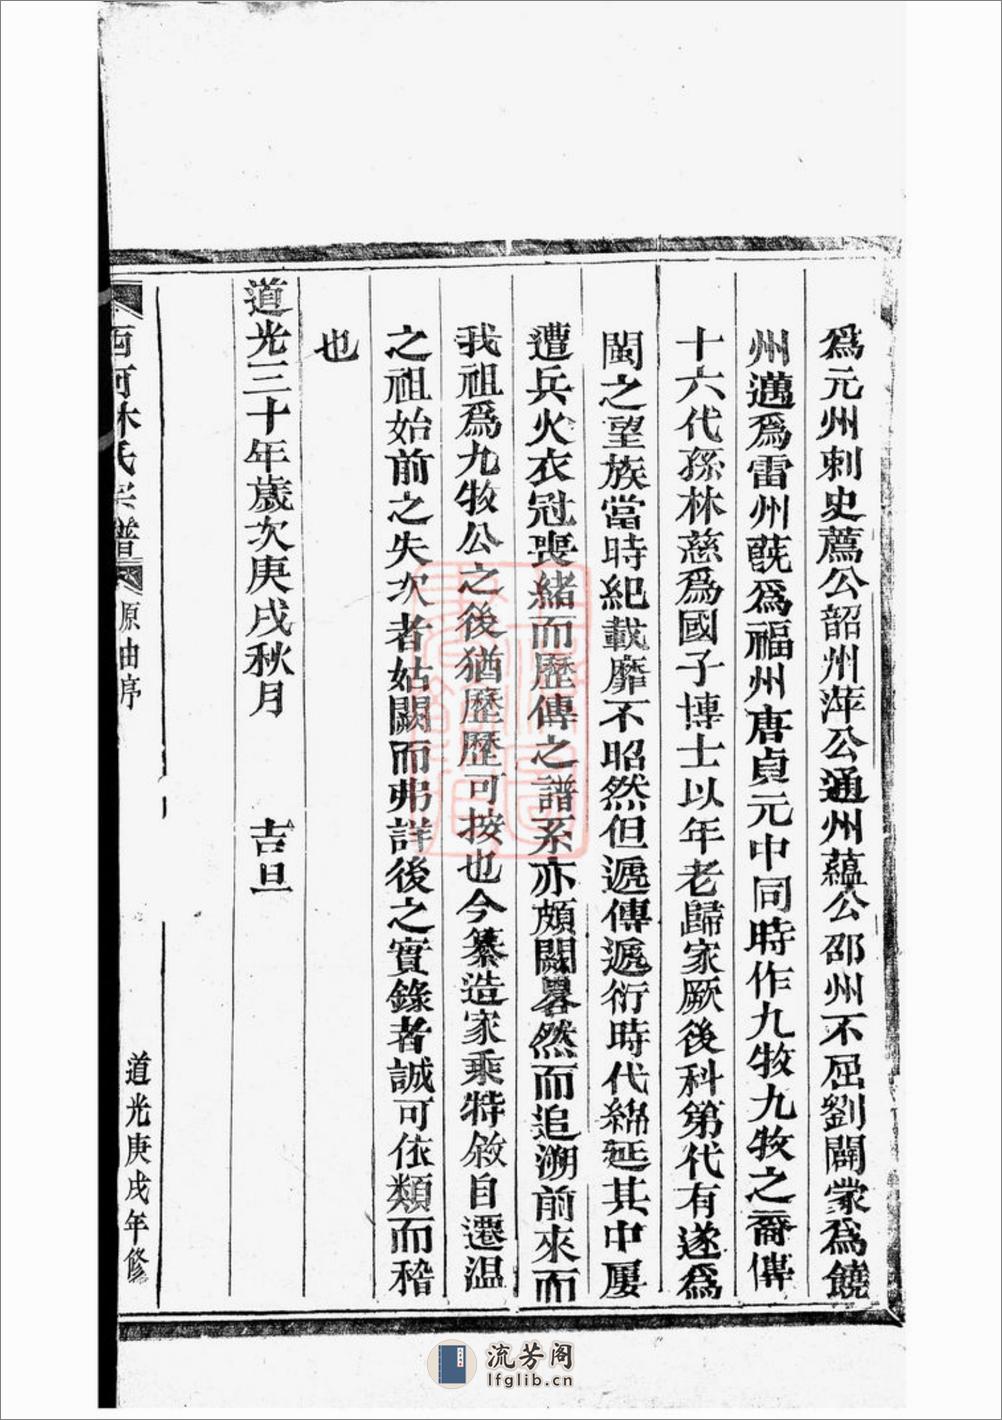 為元州刺史薦公韶州萍公通州蘊公邵州不屈劉闢蒙為饒
州邁為雷州蔇為福州唐貞元中同時作九牧九牧之裔傳
十六代孫林慈為國子博士以年老歸家厥後科第代有遂為
閩之望族當時紀載靡不昭然但遞傳遞衍時代綿延其中屢
遭兵火衣冠喪緒而歷傳之譜系亦頗闕畧然而追溯前來而
我祖爲九牧公之後猶歷歷可按也今纂造家乘特敘自遷温
之祖始前之失次者姑闕而弗詳後之實錄者誠可依類而稽
也
道光三十年歲次庚戌秋月 吉旦
西河林氏宗譜 原由序 道光庚戌年修
流芳阁
lfglib.cn